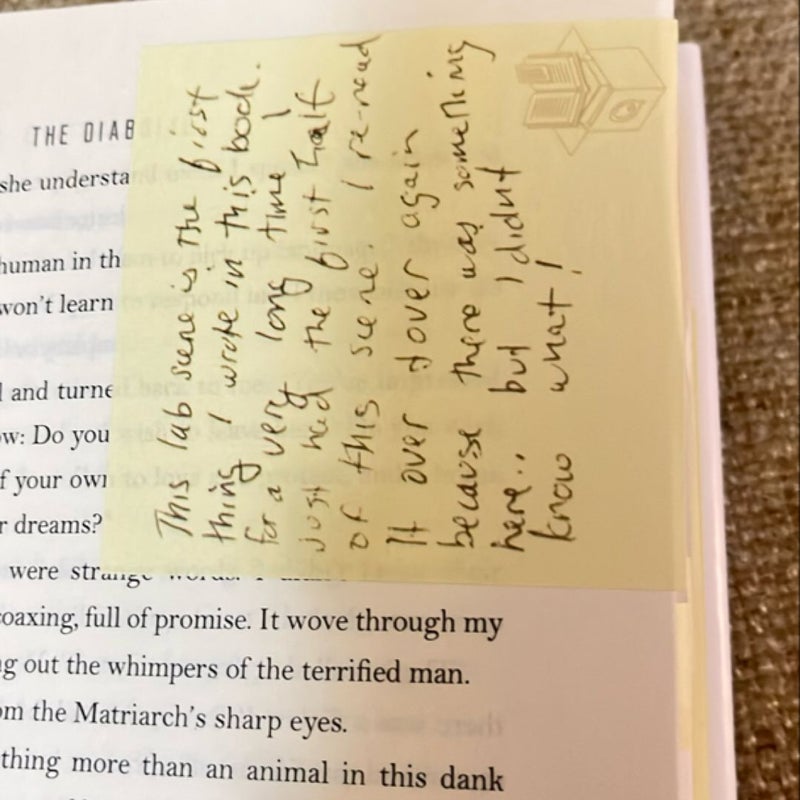 THE DIAB
she understa
human in th
won't learn
l and turne
ow: Do you
f your own
r dreams?
were strange words. I
coaxing, full of promise. It wove through my
ng out the whimpers of the terrified man.
om the Matriarch's sharp eyes.
thing more than an animal in this dank
This lab scene is the first
thing I wrote in this book.
for a very long time I
just had the first half
of this scene. I re-read
It over & over again
because there was something
here.. but I didnt
know what!